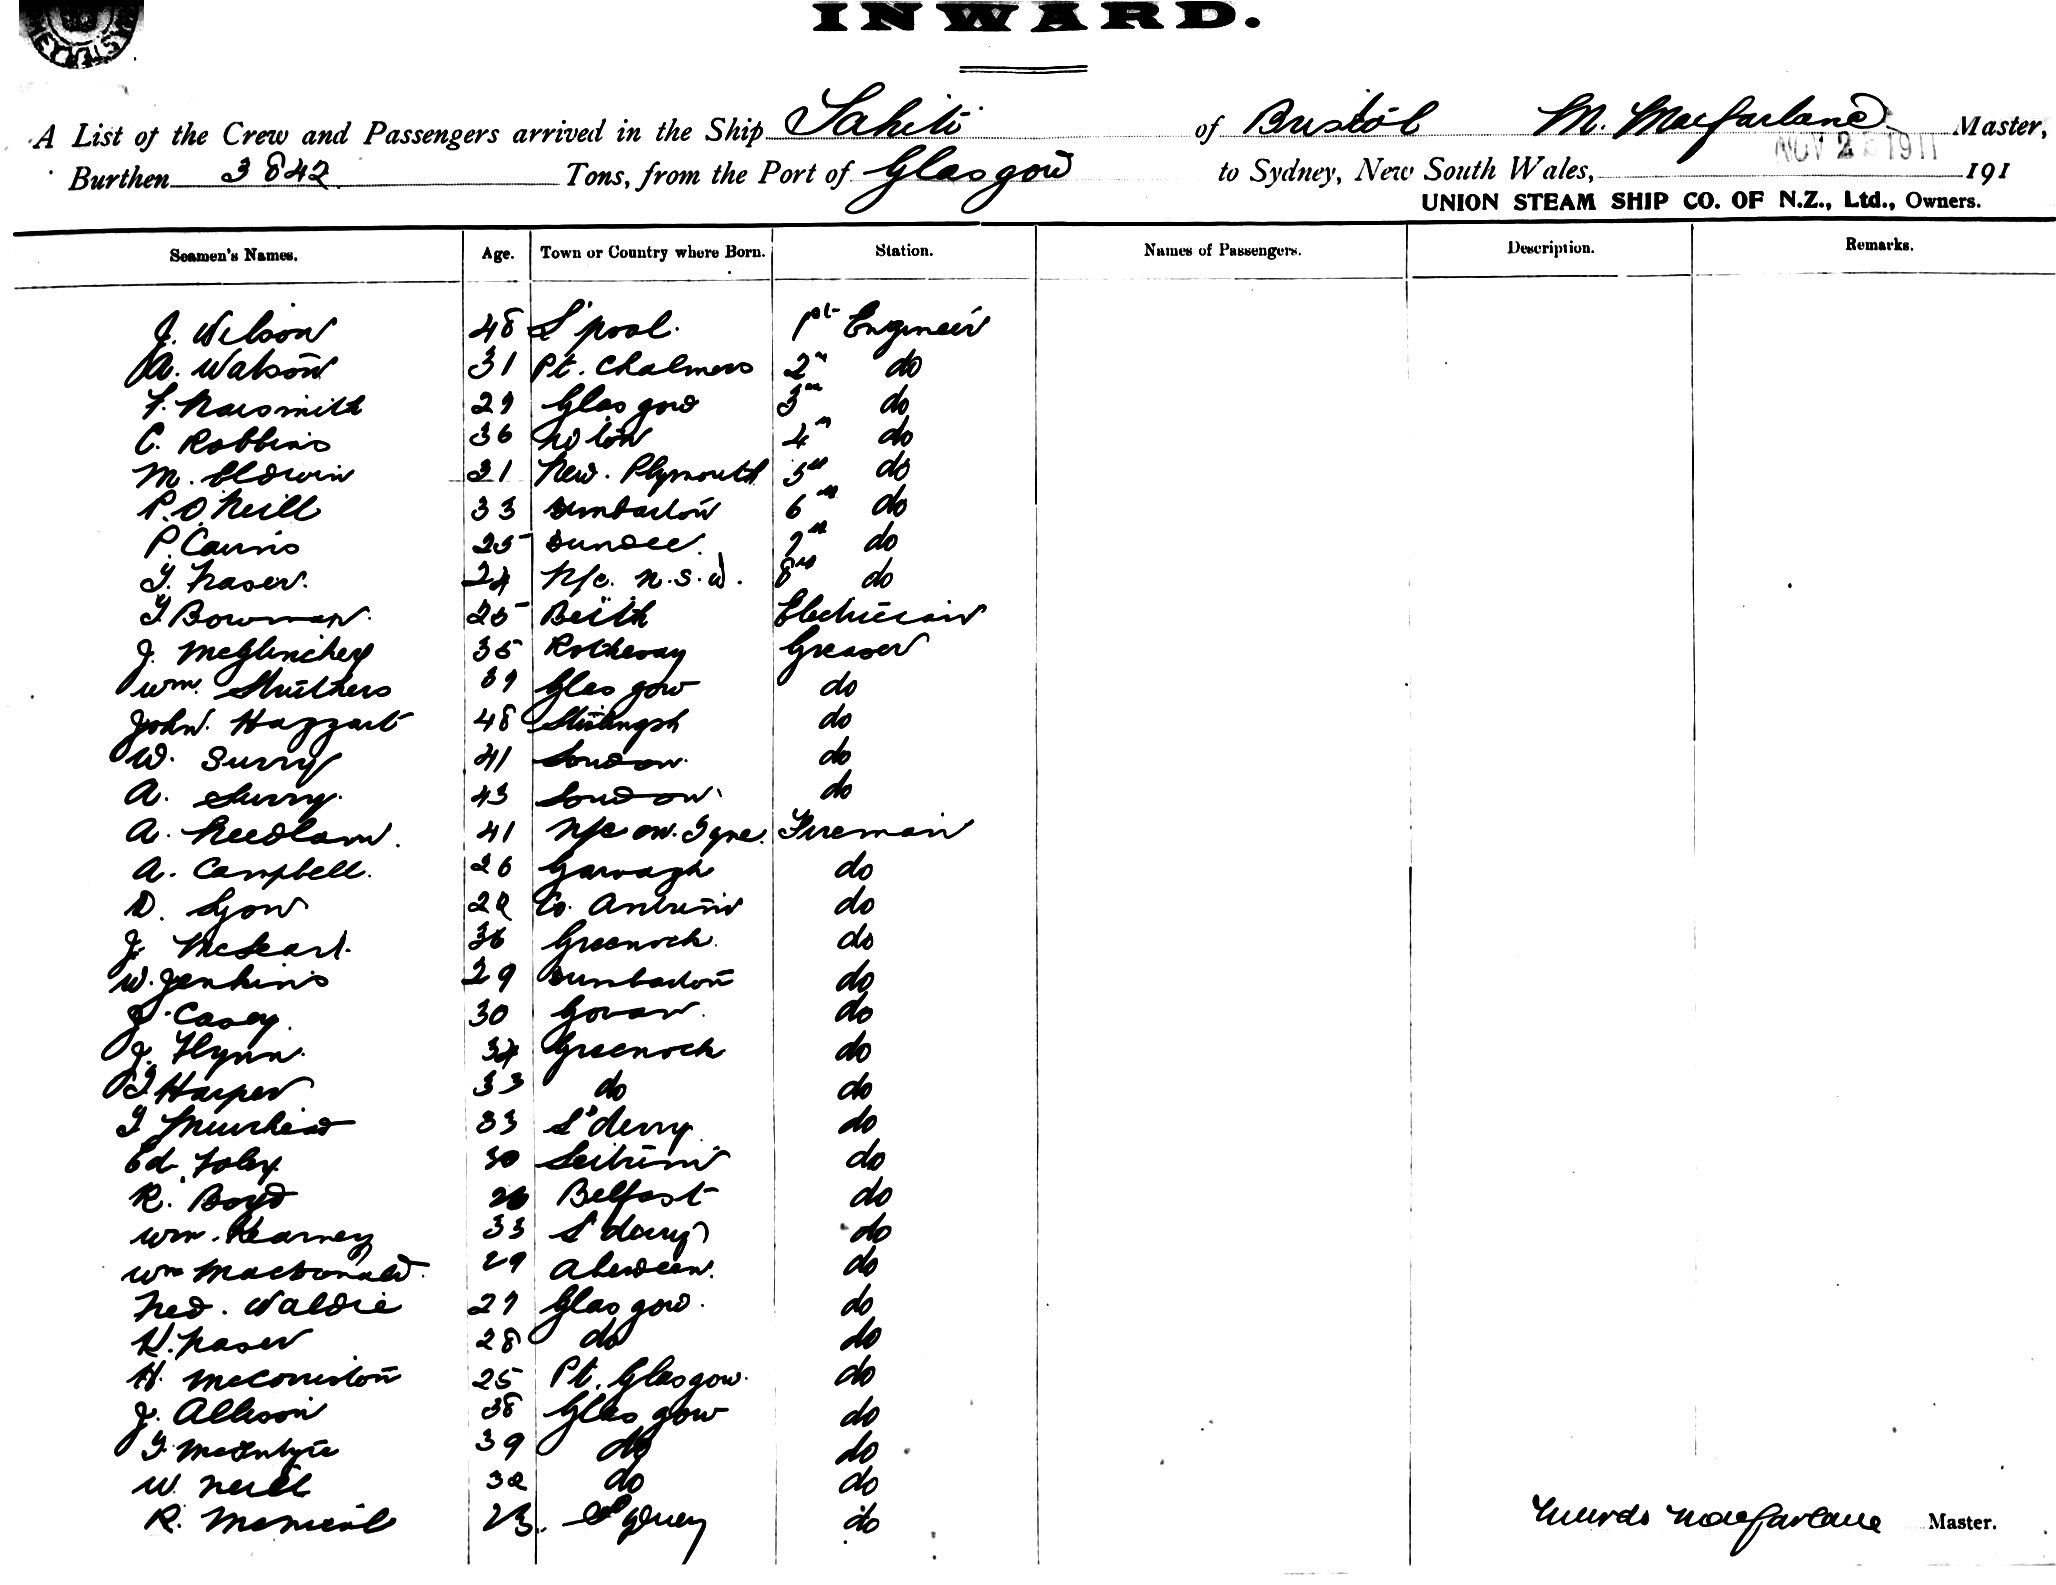 INWARD.
A List of the Crew and Passengers arrived in the Ship Tahiti of Bristol M. Macfarlane Master,
Burthen 3842 Tons, from the Port of Glasgow to Sydney, New South Wales, NOV 2 1911 191
UNION STEAM SHIP CO. OF N.Z., Ltd., Owners.
Seamen's Names. Age. Town or Country where Born. Station. Names of Passengers. Description. Remarks.
J. Wilson 48 L'pool. 1st Engineer
A. Watson 31 Pt. Chalmers 2nd do
F. Naismith 29 Glasgow 3rd do
C. Robbins 36 4th do
M. Eldwin 31 New. Plymouth 5th do
P. O'Neill 33 Dumbarton 6th do
P. Cairns 25 Dundee. 7th do
T. Fraser. 24 N/c. N.S.W. 8th do
T Bowman. 25 Beith Electrician
J. McGlinchey 35 Rothesay Greaser
Wm. Struthers 39 Glasgow do
John. Haggart 48 do
W. Surry 41 London. do
A. Surry. 43 London. do
A. Needham. 41 N/c on. Tyne. Fireman
A. Campbell. 26 Garvagh do
D. Lyon 22 Co. Antrim do
J. 36 Greenock. do
W. Jenkins 29 Dumbarton do
J. Casey. 30 Govan. do
J. Flynn. 34 Greenock do
T Harper 33 do do
T Muirhead 33 L'derry. do
Ed. Foley 30 Leitrim do
R. Boyd 26 Belfast do
Wm. Kearney 33 L'derry do
Wm MacDonald. 29 Aberdeen. do
Ned. Waldie 29 Glasgow. do
H. Fraser 28 do do
H. McCorriston 25 Pt. Glasgow. do
J. Allison 38 Glasgow do
T. McIntyre 39 do do
W. Neill 32 do do
R. McNeil 23. Sydney do
Murdo Macfarlane Master.